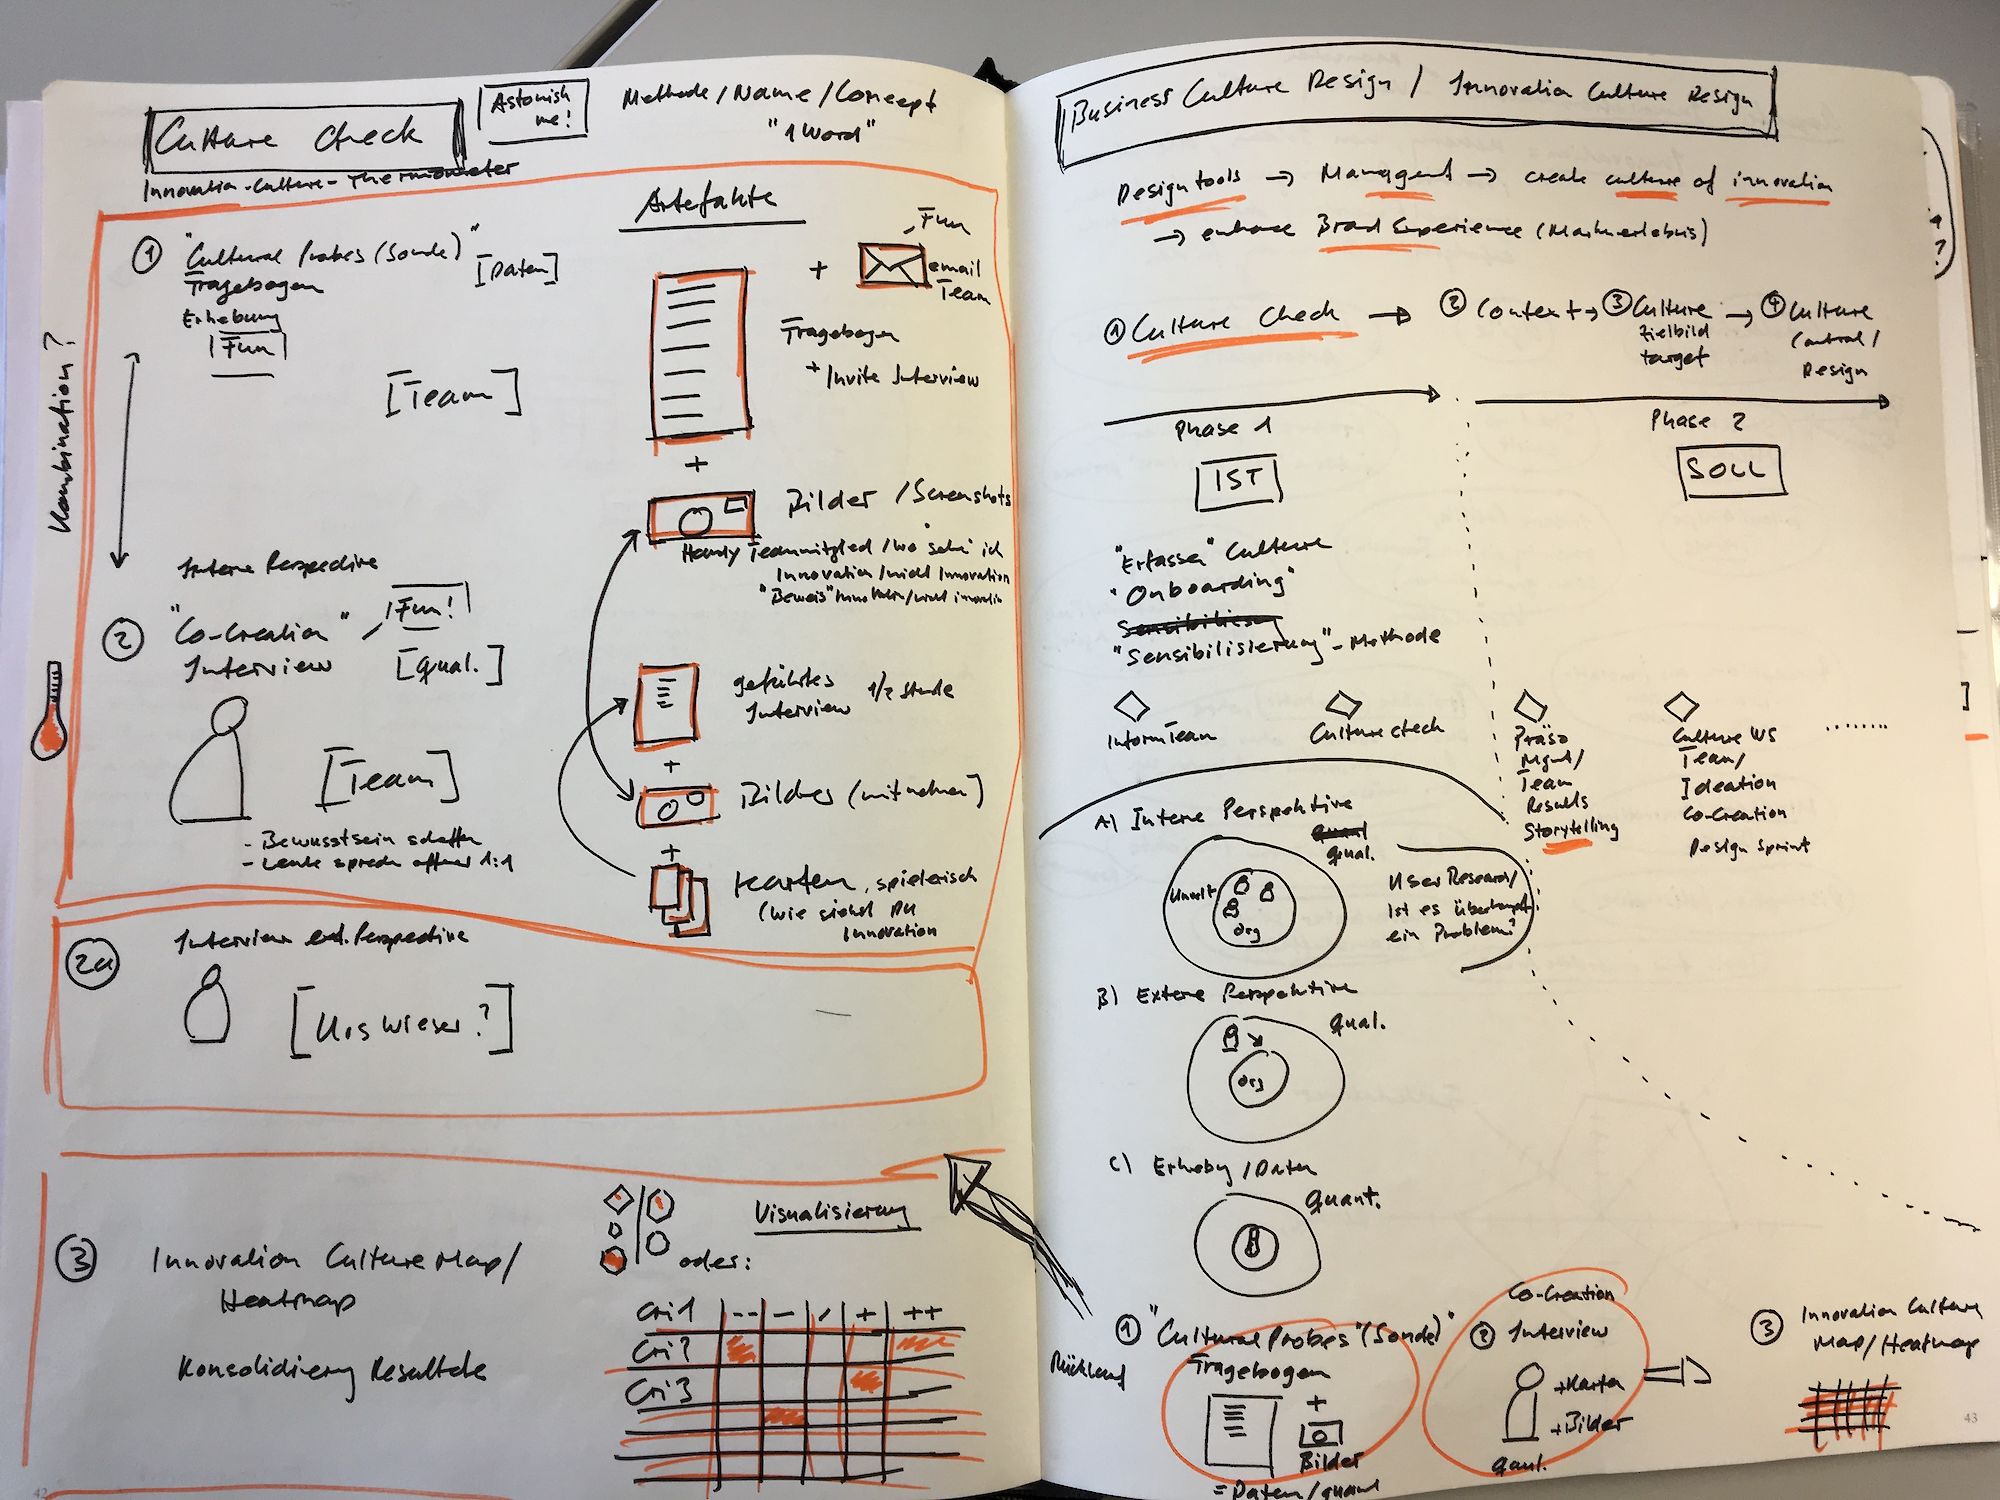 Culture Check
Astonish me!
Methode/Name/Concept
"1 Word"
Innovation-Culture-Thermometer
Kombination?
① "Cultural Probes (Sonde)"
[Daten]
Fragebogen
Erhebung
Fun
[Team]
Artefakte
Fun
+
email
Team
Fragebogen
+ Invite Interview
+
Bilder / Screenshots
Handy Teammitglied / wo sehe ich
Innovation / nicht Innovation
"Beweis" Innovation / nicht innovation
Interne Perspective
② "Co-Creation"
Interview
Fun!
[qual.]
[Team]
- Bewusstsein schaffen
- Leute sprechen offener 1:1
geführtes
Interview 1/2 Stunde
+
Bilder (mitnehmen)
+
Karten, spielerisch
(wie siehst DU
Innovation
2a
Interview ext. Perspective
[Urs Wieser?]
③ Innovation Culture Map/
Heatmap
Konsolidierung Resultate
Visualisierung
oder:
Cri1 -- - / + ++
Cri2
Cri3
42
Business Culture Design / Innovation Culture Design
Designtools → Management → create culture of innovation
→ enhance Brand Experience (Markenerlebnis)
① Culture Check → ② Context → ③ Culture → ④ Culture
Zielbild
target
Control/
Design
Phase 1
IST
Phase 2
SOLL
"Erfassen" Culture
"Onboarding"
"Sensibilisierung"-Methode
InformTeam
Culture check
Präso
Mgmt/
Team
Results
Storytelling
Culture WS
Team/
Ideation
Co-Creation
Design Sprint
........
A) Interne Perspektive
qual.
Umwelt
Org
User Research/
Ist es überhaupt
ein Problem?
B) Externe Perspektive
qual.
Org
C) Erhebung / Daten
quant.
① "Cultural Probes" (Sonde)"
Fragebogen
Rücklauf
+
Bilder
= Daten/quant
Co-Creation
② Interview
+Karten
+Bilder
qual.
③ Innovation Culture
Map/Heatmap
43